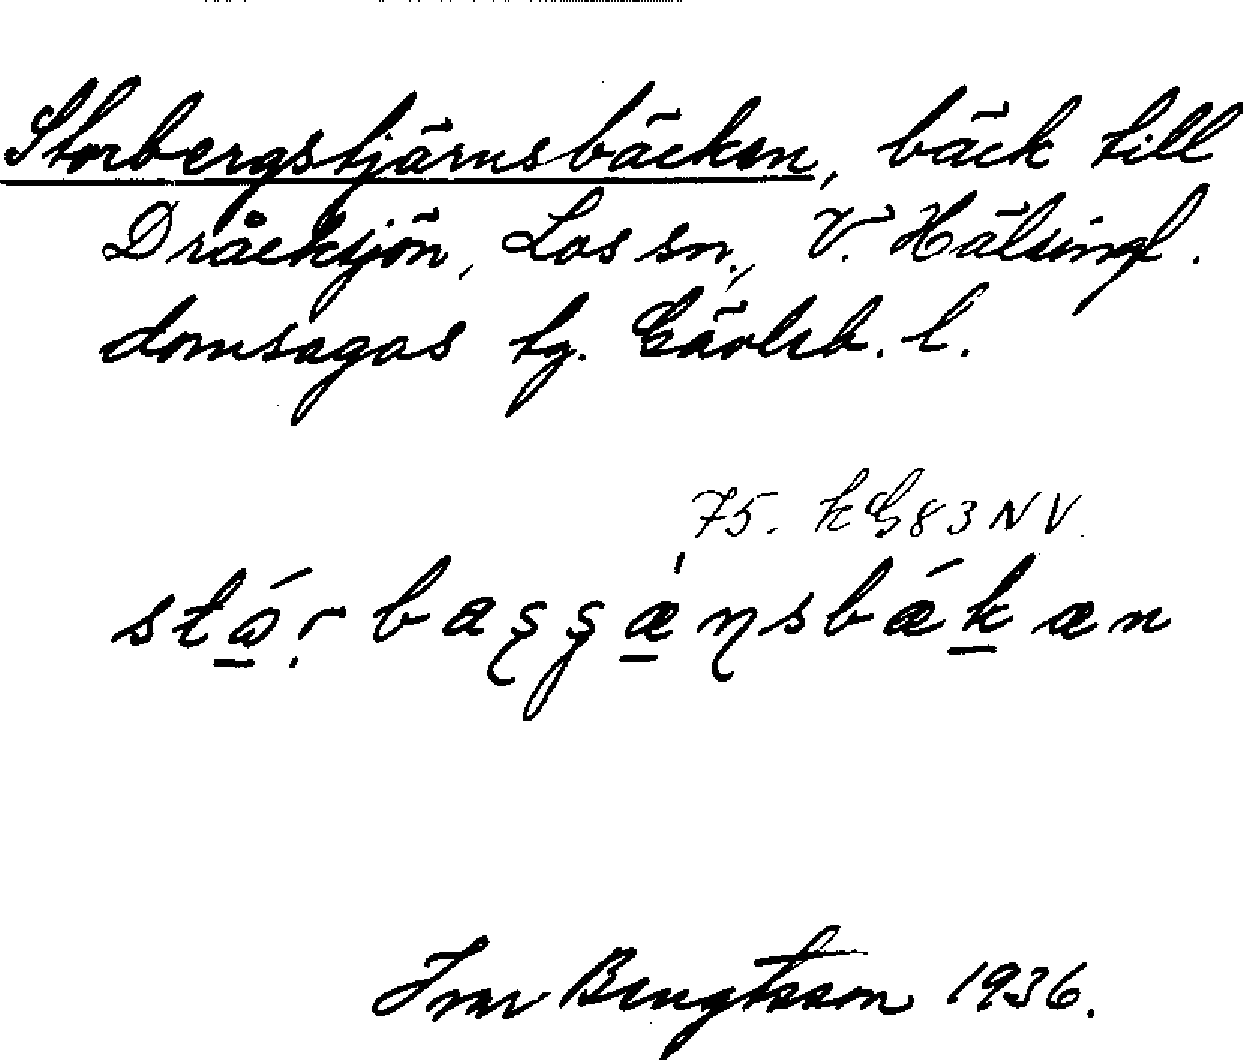 Storbergstjärnsbäcken, bäck till
Dråcksjön, Los sn, V. Hälsingl.
domsagas tg. Gävleb. l.
75. kG83NV.
Ivar Bengtsson 1936.